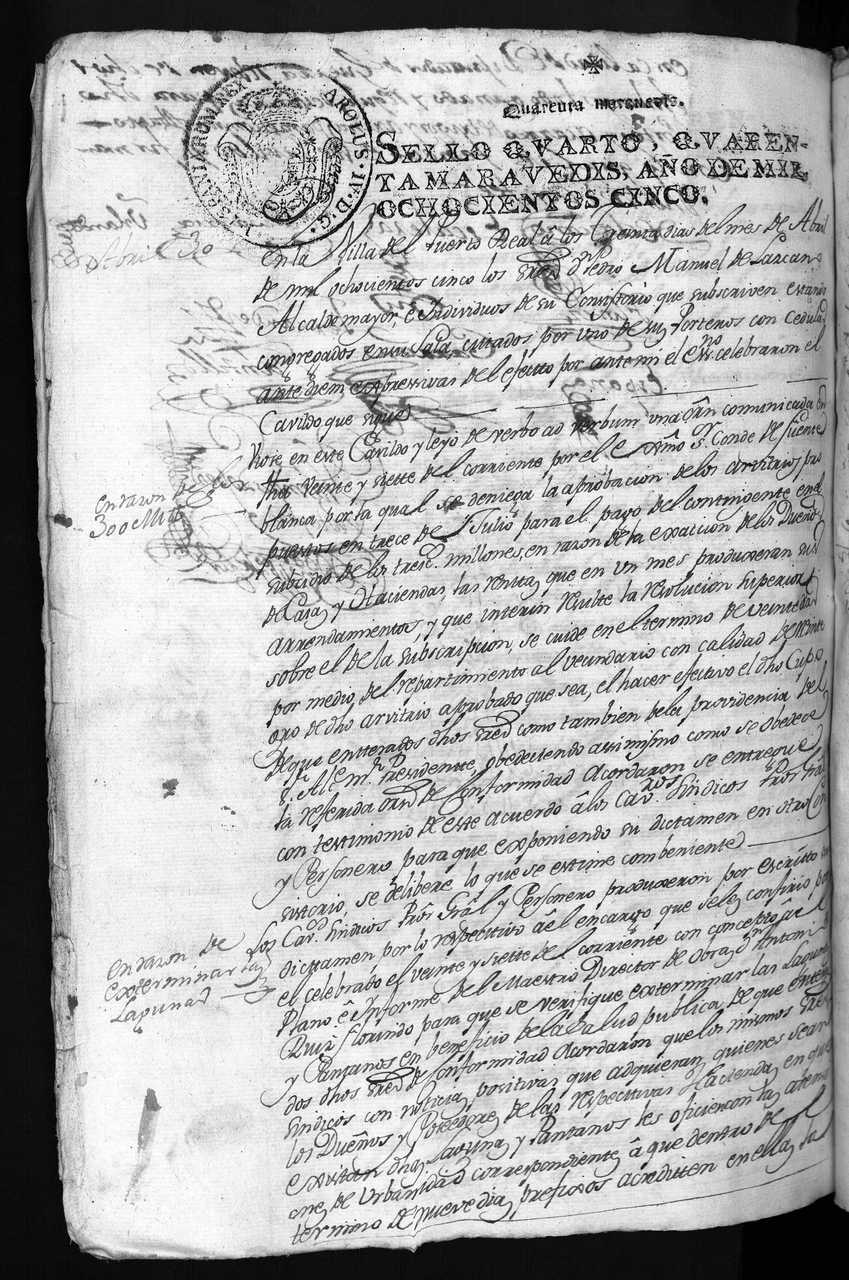 Quarenta maravedis.
SELLO QVARTO, QVAREN-
TA MARAVEDIS, AÑO DE MIL
OCHOCIENTOS CINCO.
CAROLUS·IV·D·G· HISPANIARUM REX
Abril 30
En la Villa del Puerto Real â los treinta dias del mes de Abril
de mil ochocientos cinco los Sres Dn Pedro Manuel de Lazcano
Alcalde mayor, é Individuos de su Consistorio que subscriven estando
congregados en su Sala citados por uno de sus Porteros con cedula
ante diem expressivas del efecto por ante mi el Essno. celebraron el
Cavildo que sigue
en razon de los
300 Mills
Viose en este Cavildo y leyo de verbo ad verbum una orn comunicada en
veinte y siete del corriente, por el Sr Conde de fuente
blanca por la qual se deniega la aprobacion de los arvitrios pro
puestos en trece de Julio para el pago del contingente en el
subsidio de los tresc. millones, en razon de la exaccion de los Dueños
de Casas y Haciendas, las rentas que en un mes produxeran sus
arrendamientos, y que interin resulte la resolucion superior
sobre el de la subscripcion, se cuide en el termino de veinte dias
por medio del repartimiento al vecindario con calidad de reinte
gro de dho arvitrio aprobado que sea, el hacer efectivo el dho Cupo
de que entterados dhos Sres como tambien de la providencia del
Sr. Alce mr. Presidente, obedeciendo assimismo como se obedece
la referida ord de conformidad Acordaron se entregue
con testimonio de este acuerdo â los Cavros Sindicos Pror Gral
y Personero, para que exponiendo su dictamen en otro Con
sistorio, se delibere lo que se estime combeniente
en razon de
exterminar las
Lagunas
Los Cavs. Sindicos Pror Gral y Personero produxeron por escripto su
dictamen por lo respectivo âl encargo que se les confirió por
el celebrado el veinte y siette del corriente con concepto âl
Plano é Informe del Maestro Director de Obras Dn Antonio
Ruiz florindo para que se verifique exterminar las Lagunas
y Pantanos en beneficio de la Salud publica, de que entera
dos dhos Sres de conformidad Acordaron que los mismos Sres
Sindicos con noticias positivas que adquieran, quienes sean
los Dueños y Posedores de las respectivas Haciendas en que
existan dhas Lagunas y Pantanos les oficien con las atencio
nes de Urbanidad correspondiente â que dentro del
termino de nueve dias prefixos acrediten en ellas la